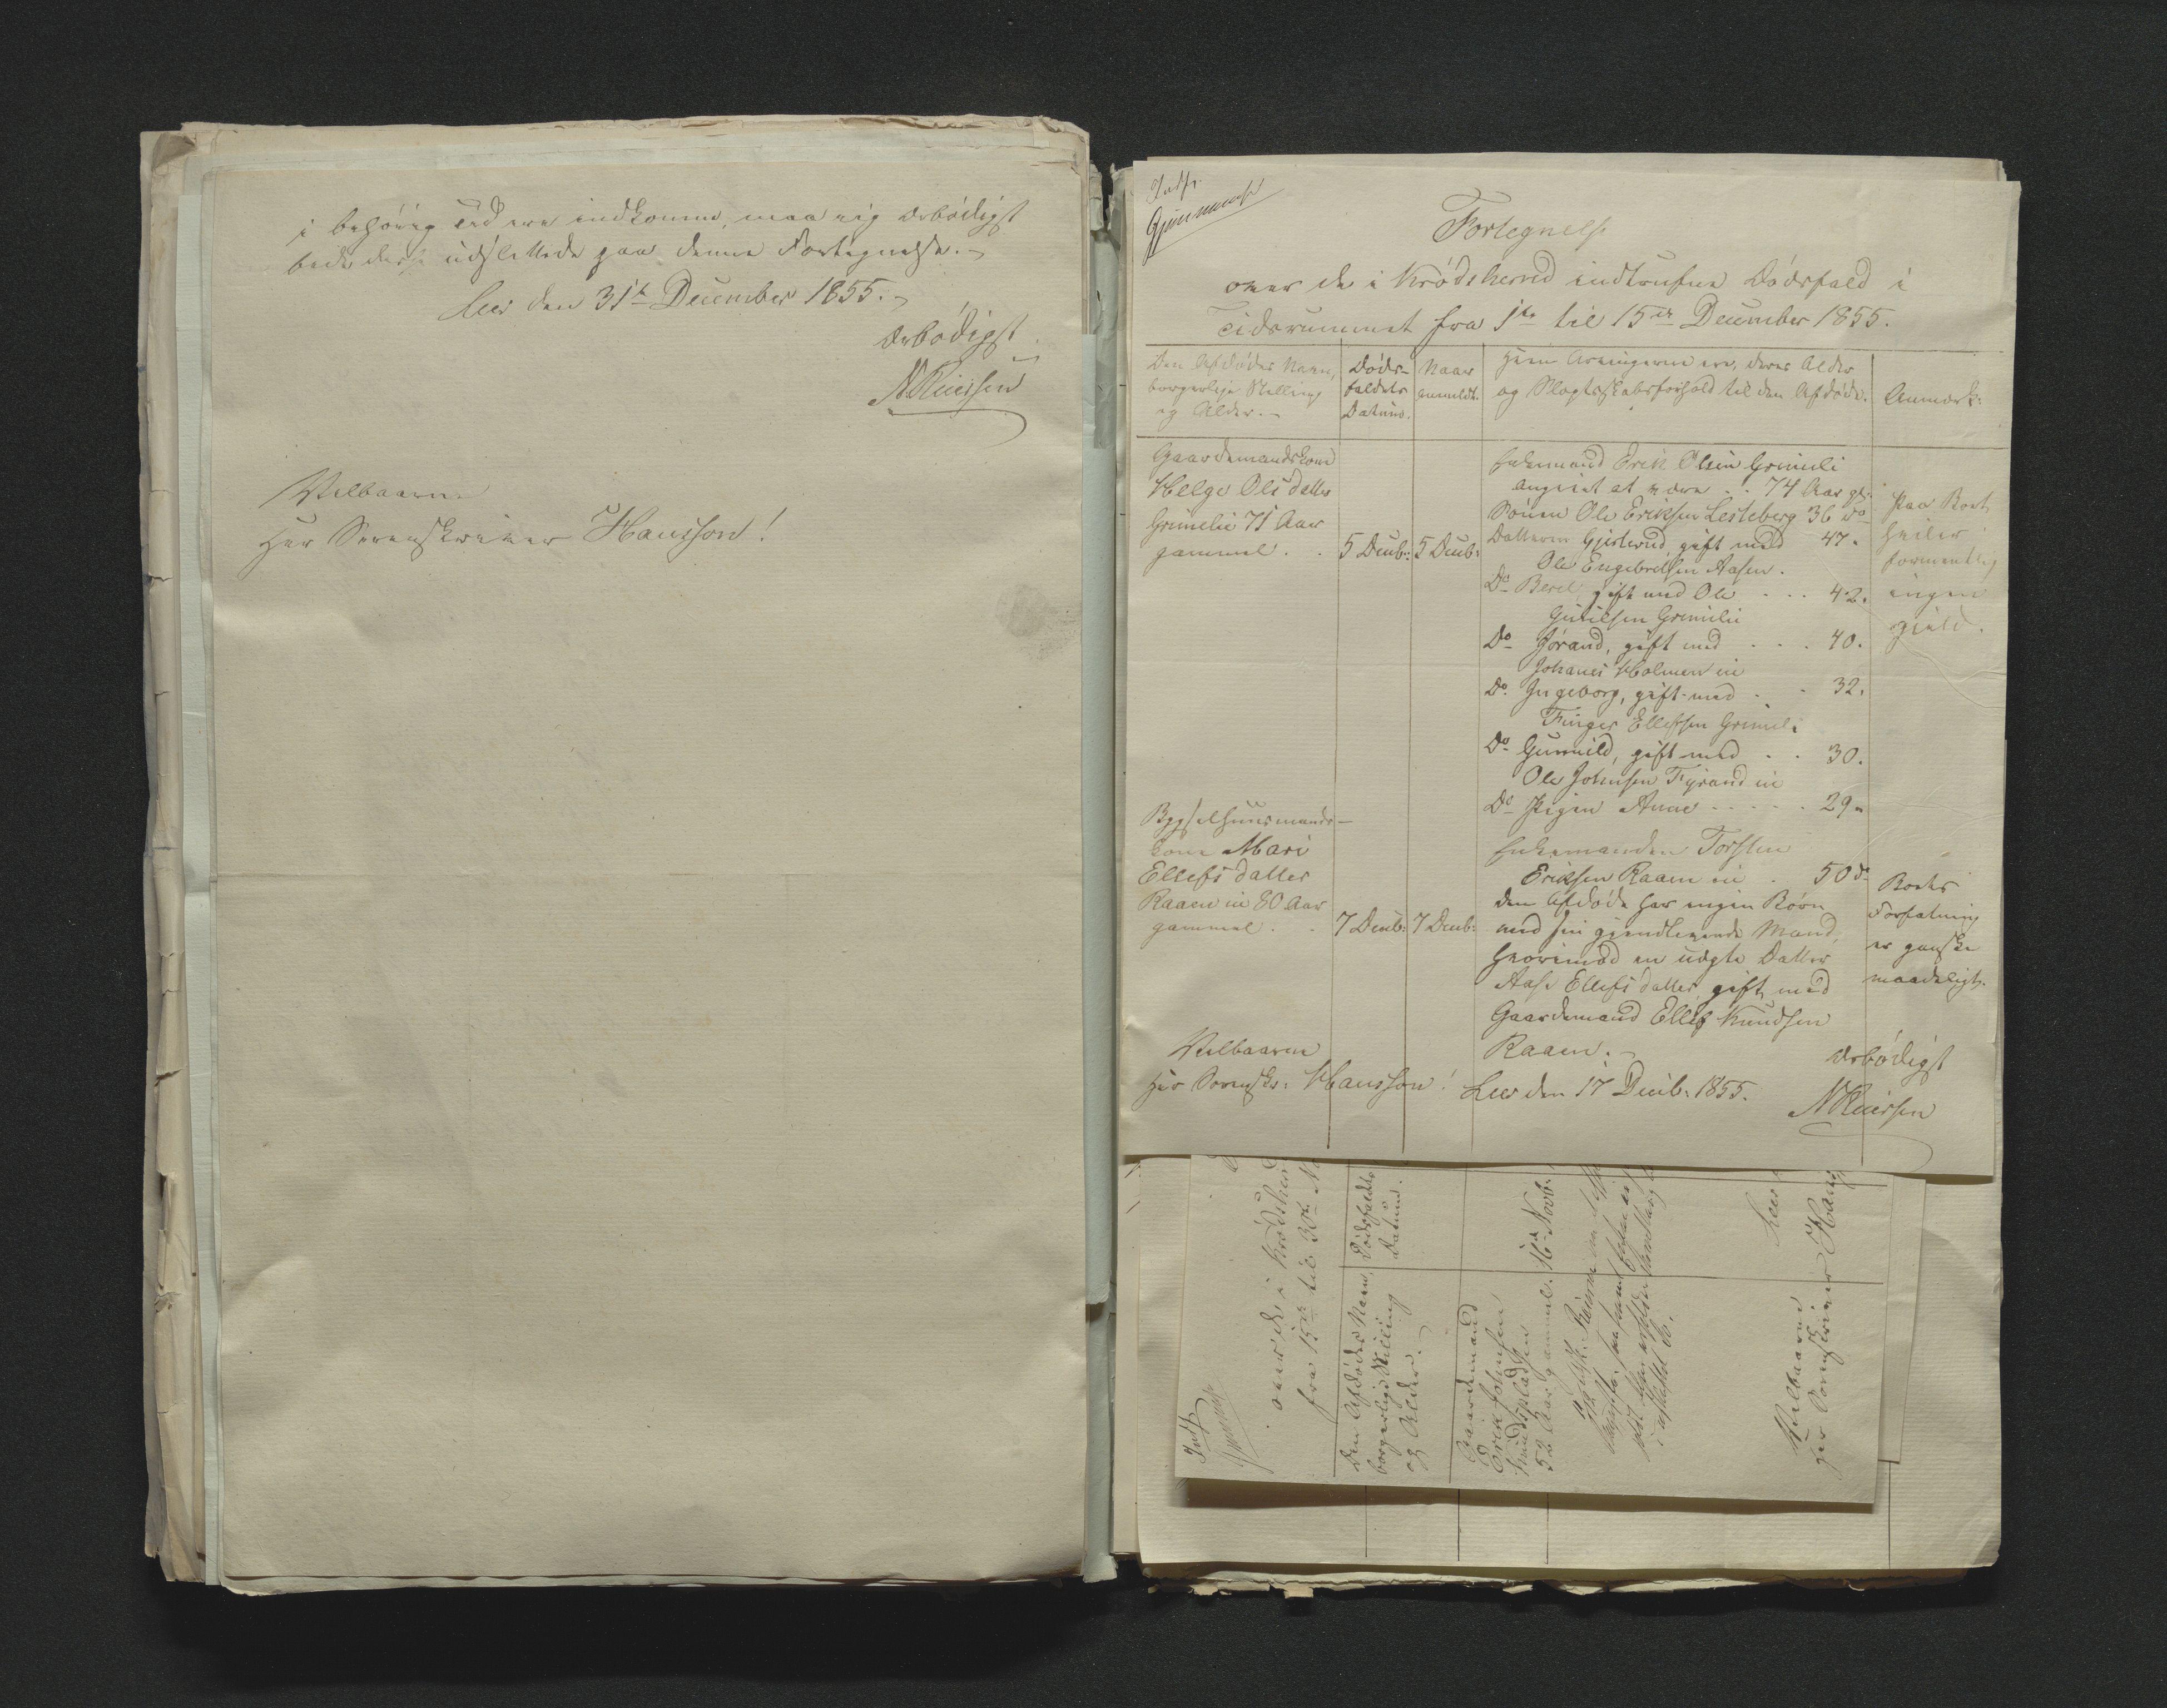 i behørig Tid ere indkomne, maa jeg ærbødigst
bede disse udslettede paa denne Fortegnelse.-
Leer den 31te December 1855.-
Ærbødigst
N Riiersen
Velbaarne
Herr Sorenskriver Hansson!
Indf.
Fortegnelse
over de i Krødsherred indtrufne Dødsfald i
Tidsrummet fra 1ste til 15de December 1855.
Den Afdødes Navn,
borgerlige Stilling
og Alder.-
Døds-
faldets
Datum.
Naar
anmeldt.
Hvem Arvingerne ere, deres Alder
og Slægtskabsforhold til den Afdøde.
Anmærk:
Gaardemandskone
Helge Olsdatter
Grimelie 71 Aar
gammel. .
5 Decb:
5 Decb:
Enkemand Erik Olsen Grimeli
angivet at være . . 74 Aar gl.
Sønnen Ole Eriksen Lesteberg 36 do
Datteren Gjertrud, gift med 47.
Ole Engebretsen Aasen.
Do Beret, gift med Ole . . . 42.
Grimelie
Do Jørand, gift med . . . 40.
Johannes Holmen eie
Do Ingeborg, gift med . . 32.
Ellefsen Grimeli
Do Gunnild, gift med . . 30.
Ole Johnsen Fyrand eie
Do Pigen Anne . . . . . 29.
paa Boet
hviler
formentlig
ingen
Gjæld.
Bygselhuusmands-
kone Mari
Ellefsdatter
Raaen eie 80 Aar
gammel. .
7 Decb:
7 Decb:
Enkemanden Torsten
Eriksen Raaen eie . 50 do
den Afdøde har ingen Børn
med sin gjenlevende Mand,
hvorimod en uægte Datter
Aase Ellefsdatter, gift med
Gaardemand Ellef Knudsen
Raaen.-
Boets
Forfatning
er ganske
maadeligt.
Velbaarne
Herr Sorenskr: Hansson!
Leer den 17 Decb: 1855.
ærbødigst
N Riiersen
Indf.
over de i Krødsher
fra 15de til 30te No
Den Afdødes Navn,
borgerlige Stilling
og Alder.-
Dødsfaldets
Datum.
Gaardemand
Erik Johnsen
52 Aar gammel. 16de Novb:
Leer
Velbaarne
Herr Sorenskriver Hans